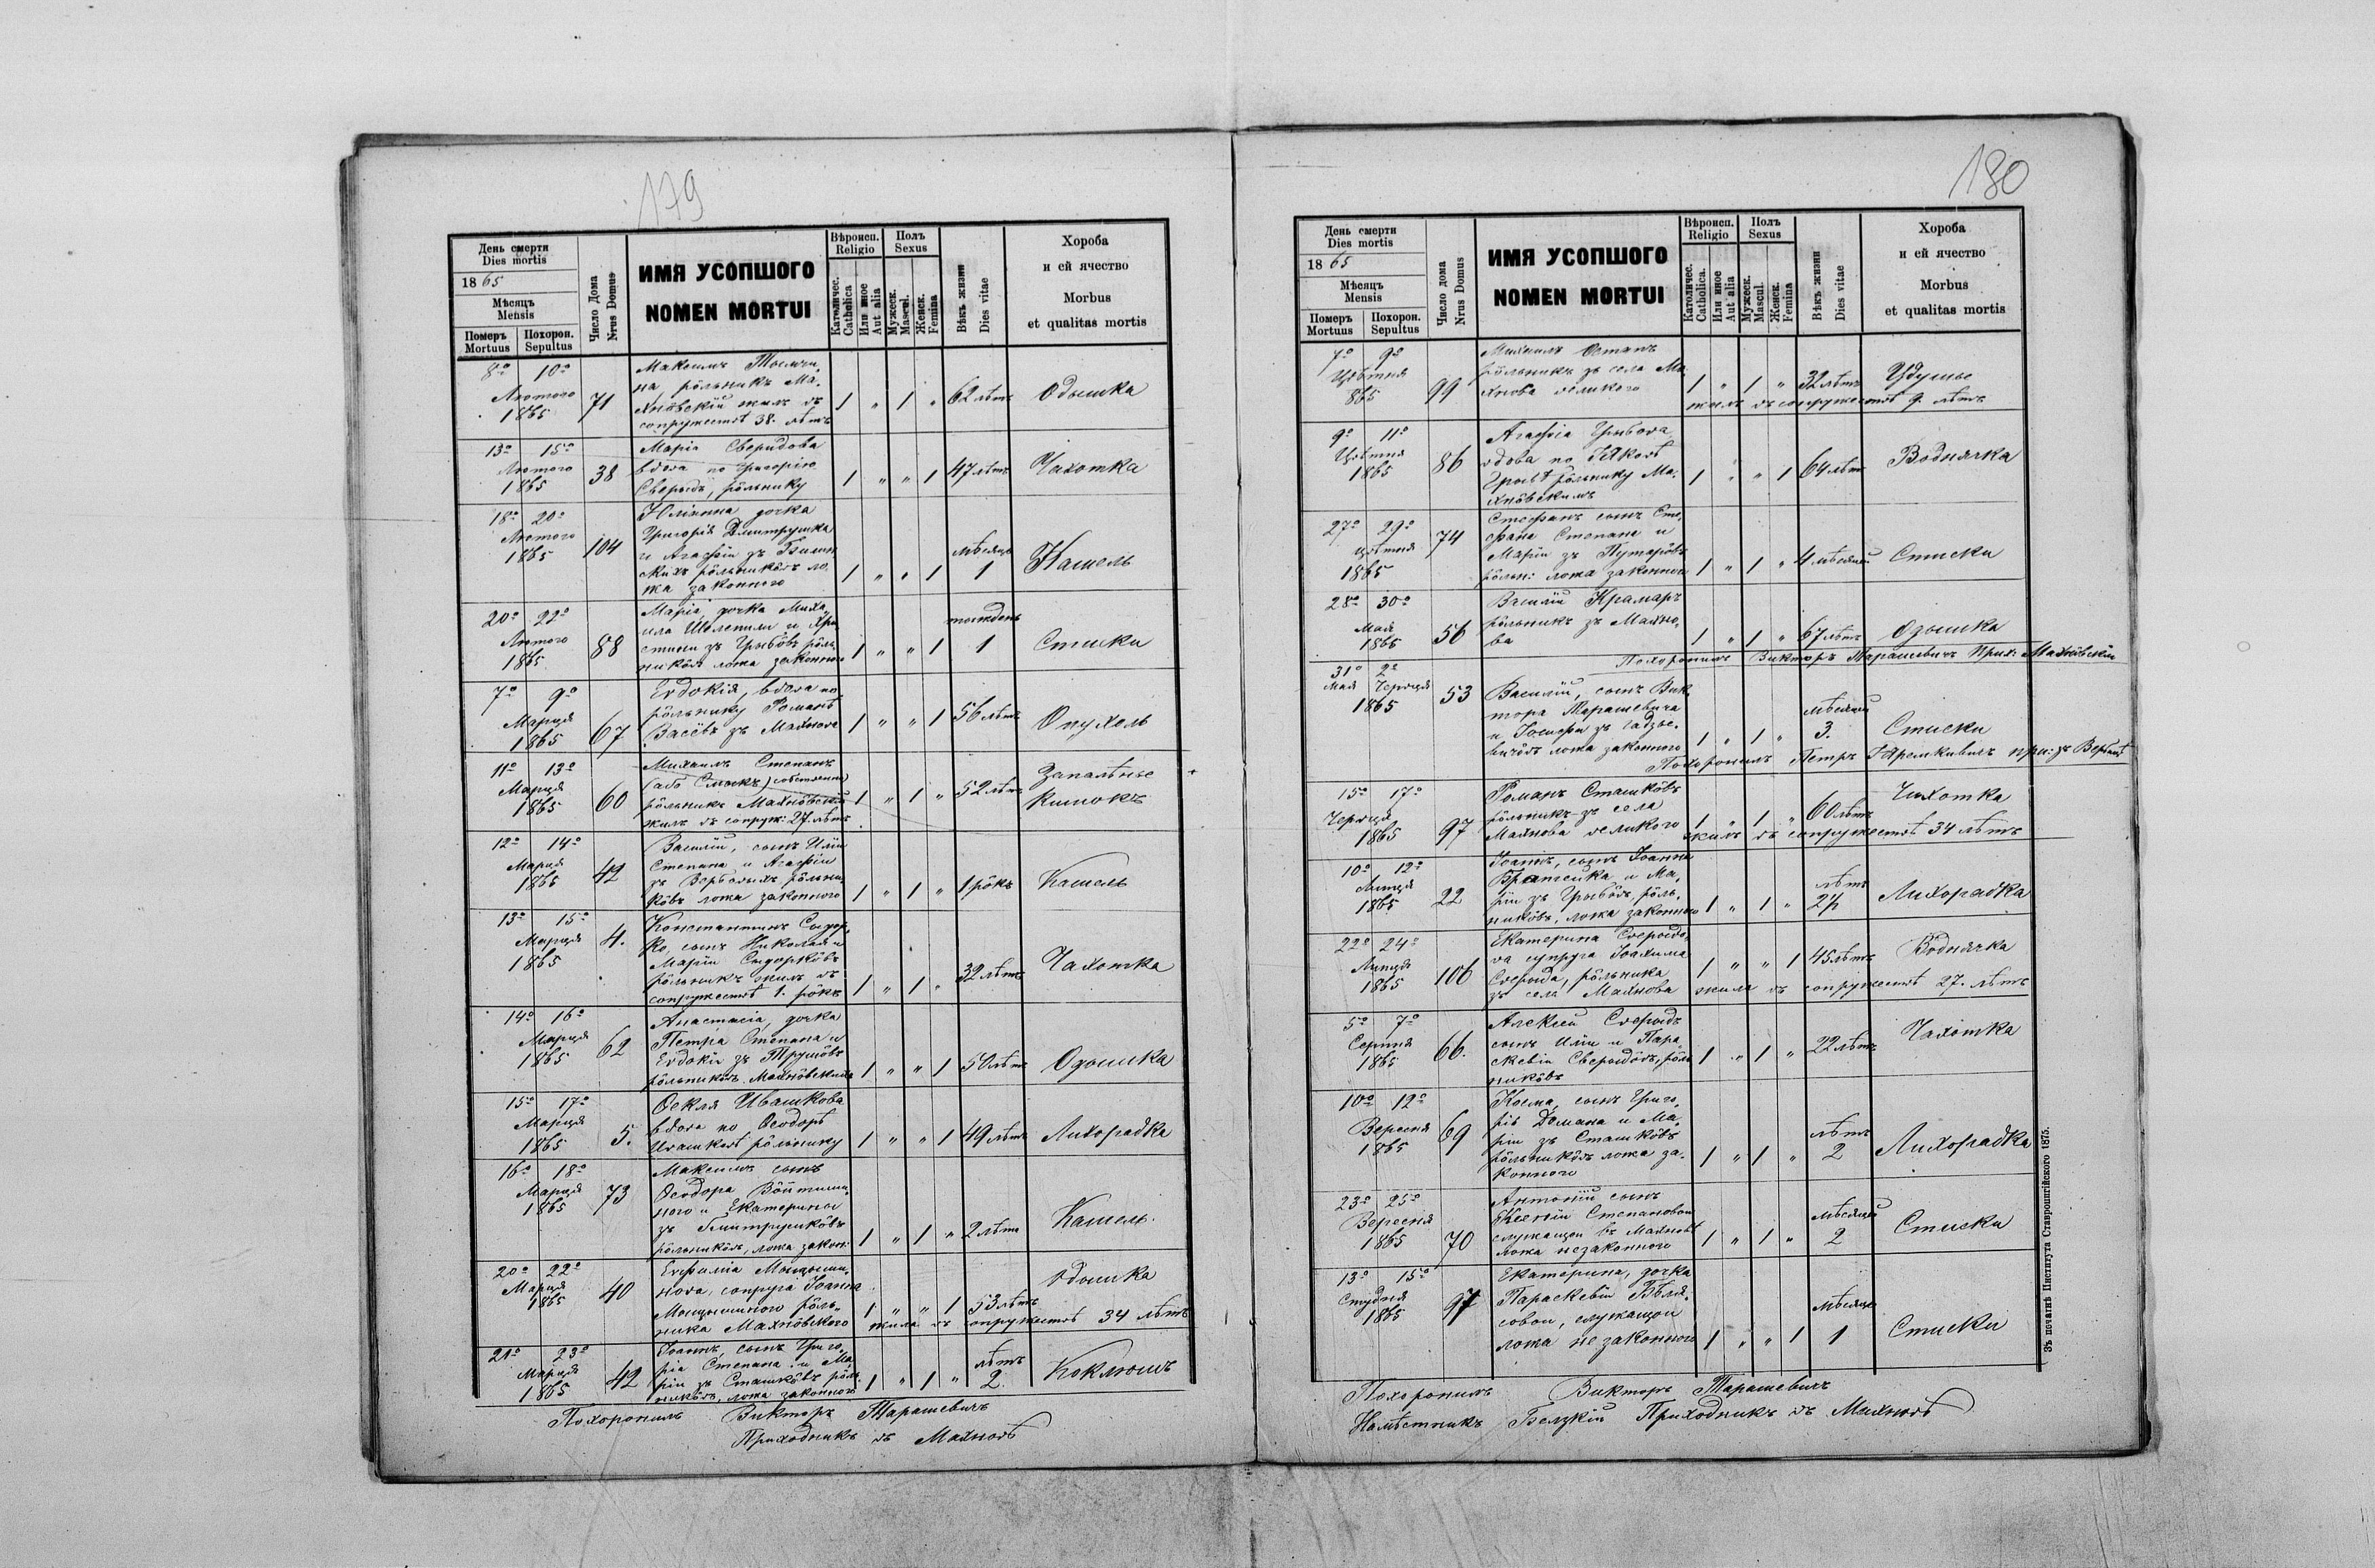 179
День смерти
Dies mortis
1865
Мѣсяцъ
Mensis
Померъ
Mortuus
Похорон.
Sepultus
Число Дома
Nrus Domus
ИМЯ УСОПШОГО
NOMEN MORTUI
Вѣроисп.
Religio
Католичес.
Catholica
Или иное
Aut alia
Полъ
Sexus
Мужеск.
Mascul.
Женск.
Femina
Вѣкъ жизни
Dies vitae
Хороба
и ей ячество
Morbus
et qualitas mortis
8º 10º
Лютого
1865
71
Максимъ
на рôльникъ Ма-
хнôвскій жилъ въ
сопружествѣ 38. лѣтъ
1 „ 1 „
62 лѣтъ
Одышка
13º 15º
Лютого
1865
38
Марія Сверидова
вдова по Григорію
Сверидъ, рôльнику
1 „ „ 1
47 лѣтъ
Чахотка
18º 20º
Лютого
1865
104
Юліянна дочка
Григорія Дмитрушка
и Агафіи зъ
скихъ рôльникôвъ ло-
жа законного
1 „ „ 1
мѣсяць
1
Кашель
20º 22º
Лютого
1865
88
Марія, дочка Миха-
ила и Хри
стини зъ Грыбôвъ рôль
никôвъ ложа законного
1 „ „ 1
тыждень
1
Стиски
7º 9º
Марця
1865
67
Евдокія, вдова по
рôльнику Романѣ
Васѣвъ зъ Махнова
1 „ „ 1
56 лѣтъ
Опухоль
11º 13º
Марця
1865
60
Михаилъ Степанъ
(або Смокъ)
рôльникъ Махнôвскій
жилъ въ сопруж: 27. лѣтъ
1 „ 1 „
52 лѣтъ
Запалѣнье
кишокъ
12º 14º
Марця
1865
42
Василій, сынъ Иліи
Степана и Агафіи
зъ Вербовыхъ рôльни-
кôвъ ложа законного
1 „ 1 „
1 рôкъ
Кашель
13º 15º
Марця
1865
4.
Константинъ Сидор-
ко, сынъ Николая и
Маріи Сидоркôвъ
рôльникъ жилъ въ
сопружествѣ 1. рôкъ
1 „ 1 „
32 лѣтъ
Чахотка
14º 16º
Марця
1865
62
Анастасія, дочка
Петра Степана и
Евдокіи зъ Трушôвъ
рôльникôвъ Махнôвскихъ
1 „ „ 1
50 лѣтъ
Одышка
15º 17º
Марця
1865
5.
Ѳекля Ивашкова
вдова по Ѳеодорѣ
Ивашковѣ рôльнику
1 „ „ 1
49 лѣтъ
Лихорадка
16º 18º
Марця
1865
73
Максимъ сынъ
Ѳеодора Вôйтиши-
ного и Екатерины
зъ Дмитрушкôвъ
рôльникôвъ, ложа закон:
1 „ 1 „
2 лѣта
Кашель.
20º 22º
Марця
1865
40
Евфимія Мощиши-
нова, сопруга Іоанна
Мощишиного рôль-
ника Махнôвского
1 „ „ 1
53 лѣтъ
жила въ сопружествѣ 34 лѣтъ
Одышка
21º 23º
Марця
1865
42
Іоаннъ, сынъ Григо-
рія Степана и Ма-
ріи зъ Сташкôвъ рôль-
никôвъ, ложа законного
1 „ 1 „
лѣтъ
2.
Коклюшъ
Похоронилъ Викторъ Тарашевичъ
Приходникъ въ Махновѣ
180
День смерти
Dies mortis
1865
Мѣсяцъ
Mensis
Померъ
Mortuus
Похорон.
Sepultus
Число дома
Nrus Domus
ИМЯ УСОПШОГО
NOMEN MORTUI
Вѣроисп.
Religio
Католичес.
Catholica.
Или иное
Aut alia
Полъ
Sexus
Мужеск.
Mascul.
Женск.
Femina
Вѣкъ жизни
Dies vitae
Хороба
и ей ячество
Morbus
et qualitas mortis
7º 9º
Цвѣтня
865
99
Михаилъ Остапъ
рôльникъ зъ села Ма-
хнова великого
1 „ 1 „
32 лѣтъ
жилъ въ сопружествѣ 9. лѣтъ
9º 11º
Цвѣтня
1865
86
Агафія Грыбова
вдова по Яковѣ
Грыбѣ рôльнику Ма-
хнôвскимъ
1 „ „ 1
64 лѣтъ
Воднячка
27º 29º
Цвѣтня
1865
74
Стефанъ сынъ Сте-
фана Степана и
Маріи зъ Путарôвъ
рôльн: ложа законного
1 „ 1 „
4 мѣсяцы
Стиски
28º 30º
Мая
1865
56
Василій Крамаръ
рôльникъ зъ Махно-
ва
1 „ 1 „
67 лѣтъ
Одышка
Похоронилъ Викторъ Тарашевичъ Прих: Махнôвскій
31º 2º
Мая Червця
1865
53
Василій, сынъ Вик-
тора Тарашевича
и Іосифы зъ Гадзѣ-
вичôвъ ложа законного
1 „ 1 „
мѣсяцы
3.
Стиски
Похоронилъ Петръ при: зъ Вербицѣ
15º 17º
Червця
1865
97
Романъ Сташкôвъ
рôльникъ зъ села
Махнова великого
1 „ 1 „
60 лѣтъ
жилъ въ сопружествѣ 34 лѣтъ
Чахотка
10º 12º
Липця
1865
22
Іоаннъ, сынъ Іоанна
Братейка и Ма-
ріи зъ Грыбôвъ, рôль-
никôвъ, ложа законного
1 „ 1 „
лѣтъ
2½
Лихорадка
22º 24º
Липця
1865
106
Екатерина Сверидо-
ва супруга Іоахима
Сверида, рôльника
зъ села Махнова
1 „ „ 1
45 лѣтъ
жила въ сопружествѣ 27. лѣтъ
Воднячка
5º 7º
Серпня
1865
66.
Алексій Сверидъ
сынъ Иліи и Пара-
скевіи Сверидôвъ, рôль
никôвъ
1 „ 1 „
22 лѣтъ
Чахотка
10º 12º
Вересня
1865
69
Косма, сынъ Григо-
рія Домана и Ма-
ріи зъ Сташкôвъ
рôльникôвъ ложа за-
конного
1 „ 1 „
лѣтъ
2
Лихорадка
23º 25º
Вересня
1865
70
Антоній сынъ
Ксеніи Степановои
служащои въ Махновѣ
ложа незаконного
1 „ 1 „
мѣсяцы
2
Стиски
13º 15º
Студня
1865
97
Екатерина, дочка
Параскевіи Бѣля-
совои, служащои
ложа незаконного
1 „ „ 1
мѣсяць
1
Стиски
Похоронилъ Викторъ Тарашевичъ
Намѣстникъ Белзкій Приходникъ въ Махновѣ
Зъ печатнѣ Института Ставропигійского 1875.